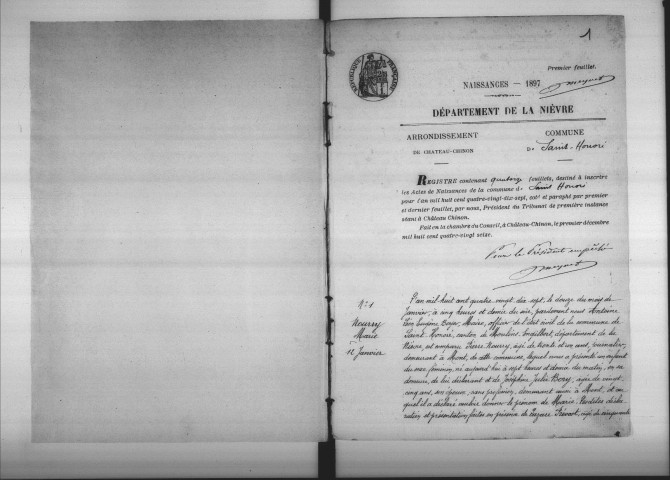 1
Premier feuillet.
RÉPUBLIQUE FRANÇAISE
NAISSANCES — 1897
DÉPARTEMENT DE LA NIÈVRE
ARRONDISSEMENT
DE CHATEAU-CHINON
COMMUNE
De Saint-Honoré
REGISTRE contenant quatorze feuillets, destiné à inscrire
les Actes de Naissances de la commune de Saint Honoré
pour l'an mil huit cent quatre-vingt-dix-sept, coté et paraphé par premier
et dernier feuillet, par nous, Président du Tribunal de première instance
séant à Château-Chinon.
Fait en la chambre du Conseil, à Château-Chinon, le premier décembre
mil huit cent quatre-vingt seize.
Pour le Président empêché
N° 1
Nourry
Marie
12 Janvier
L'an mil huit cent quatre vingt dix sept, le douze du mois de
Janvier, à cinq heures et demie du soir, pardevant nous Antoine
Léon Eugène, Maire, officier de l'état civil de la commune de
Saint Honoré, canton de Moulins Engilbert, département de la
Nièvre, est comparu Pierre Nourry, âgé de trente et un ans, journalier,
demeurant à Mont, de cette commune, lequel nous a présenté un enfant
du sexe féminin, né aujourd'hui à sept heures et demie du matin, en sa
demeure, de lui déclarant et de Joséphine Julie, âgée de vingt
cinq ans, son épouse, sans profession, demeurant aussi à Mont, et au
quel il a déclaré vouloir donner le prénom de Marie. Lesdites décla
ration et présentation faites en présence de Lazare, âgé de cinquante